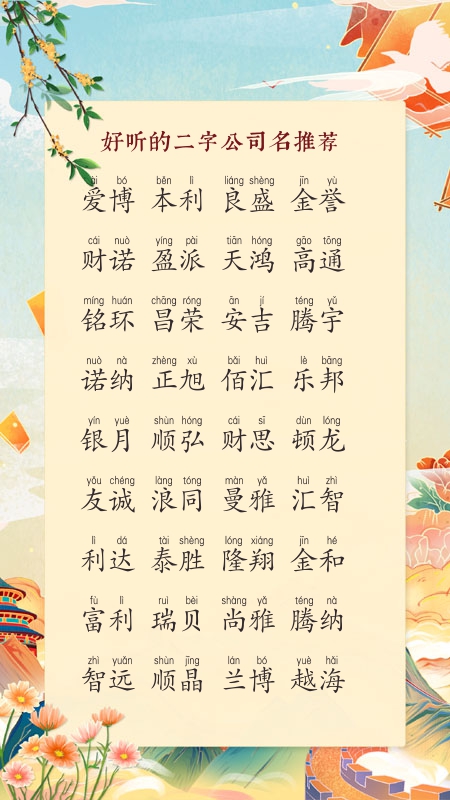 好听的二字公司名推荐
ài bó běn lì liáng shèng jīn yù
爱博 本利 良盛 金誉
cái nuò yíng pài tiān hóng gāo tōng
财诺 盈派 天鸿 高通
míng huán chāng róng ān jí téng yǔ
铭环 昌荣 安吉 腾宇
nuò nà zhèng xù bǎi huì lè bāng
诺纳 正旭 佰汇 乐邦
yín yuè shùn hóng cái sī dùn lóng
银月 顺弘 财思 顿龙
yǒu chéng làng tóng màn yǎ huì zhì
友诚 浪同 曼雅 汇智
lì dá tài shèng lóng xiáng jīn hé
利达 泰胜 隆翔 金和
fù lì ruì bèi shàng yǎ téng nà
富利 瑞贝 尚雅 腾纳
zhì yuǎn shùn jīng lán bó yuè hǎi
智远 顺晶 兰博 越海